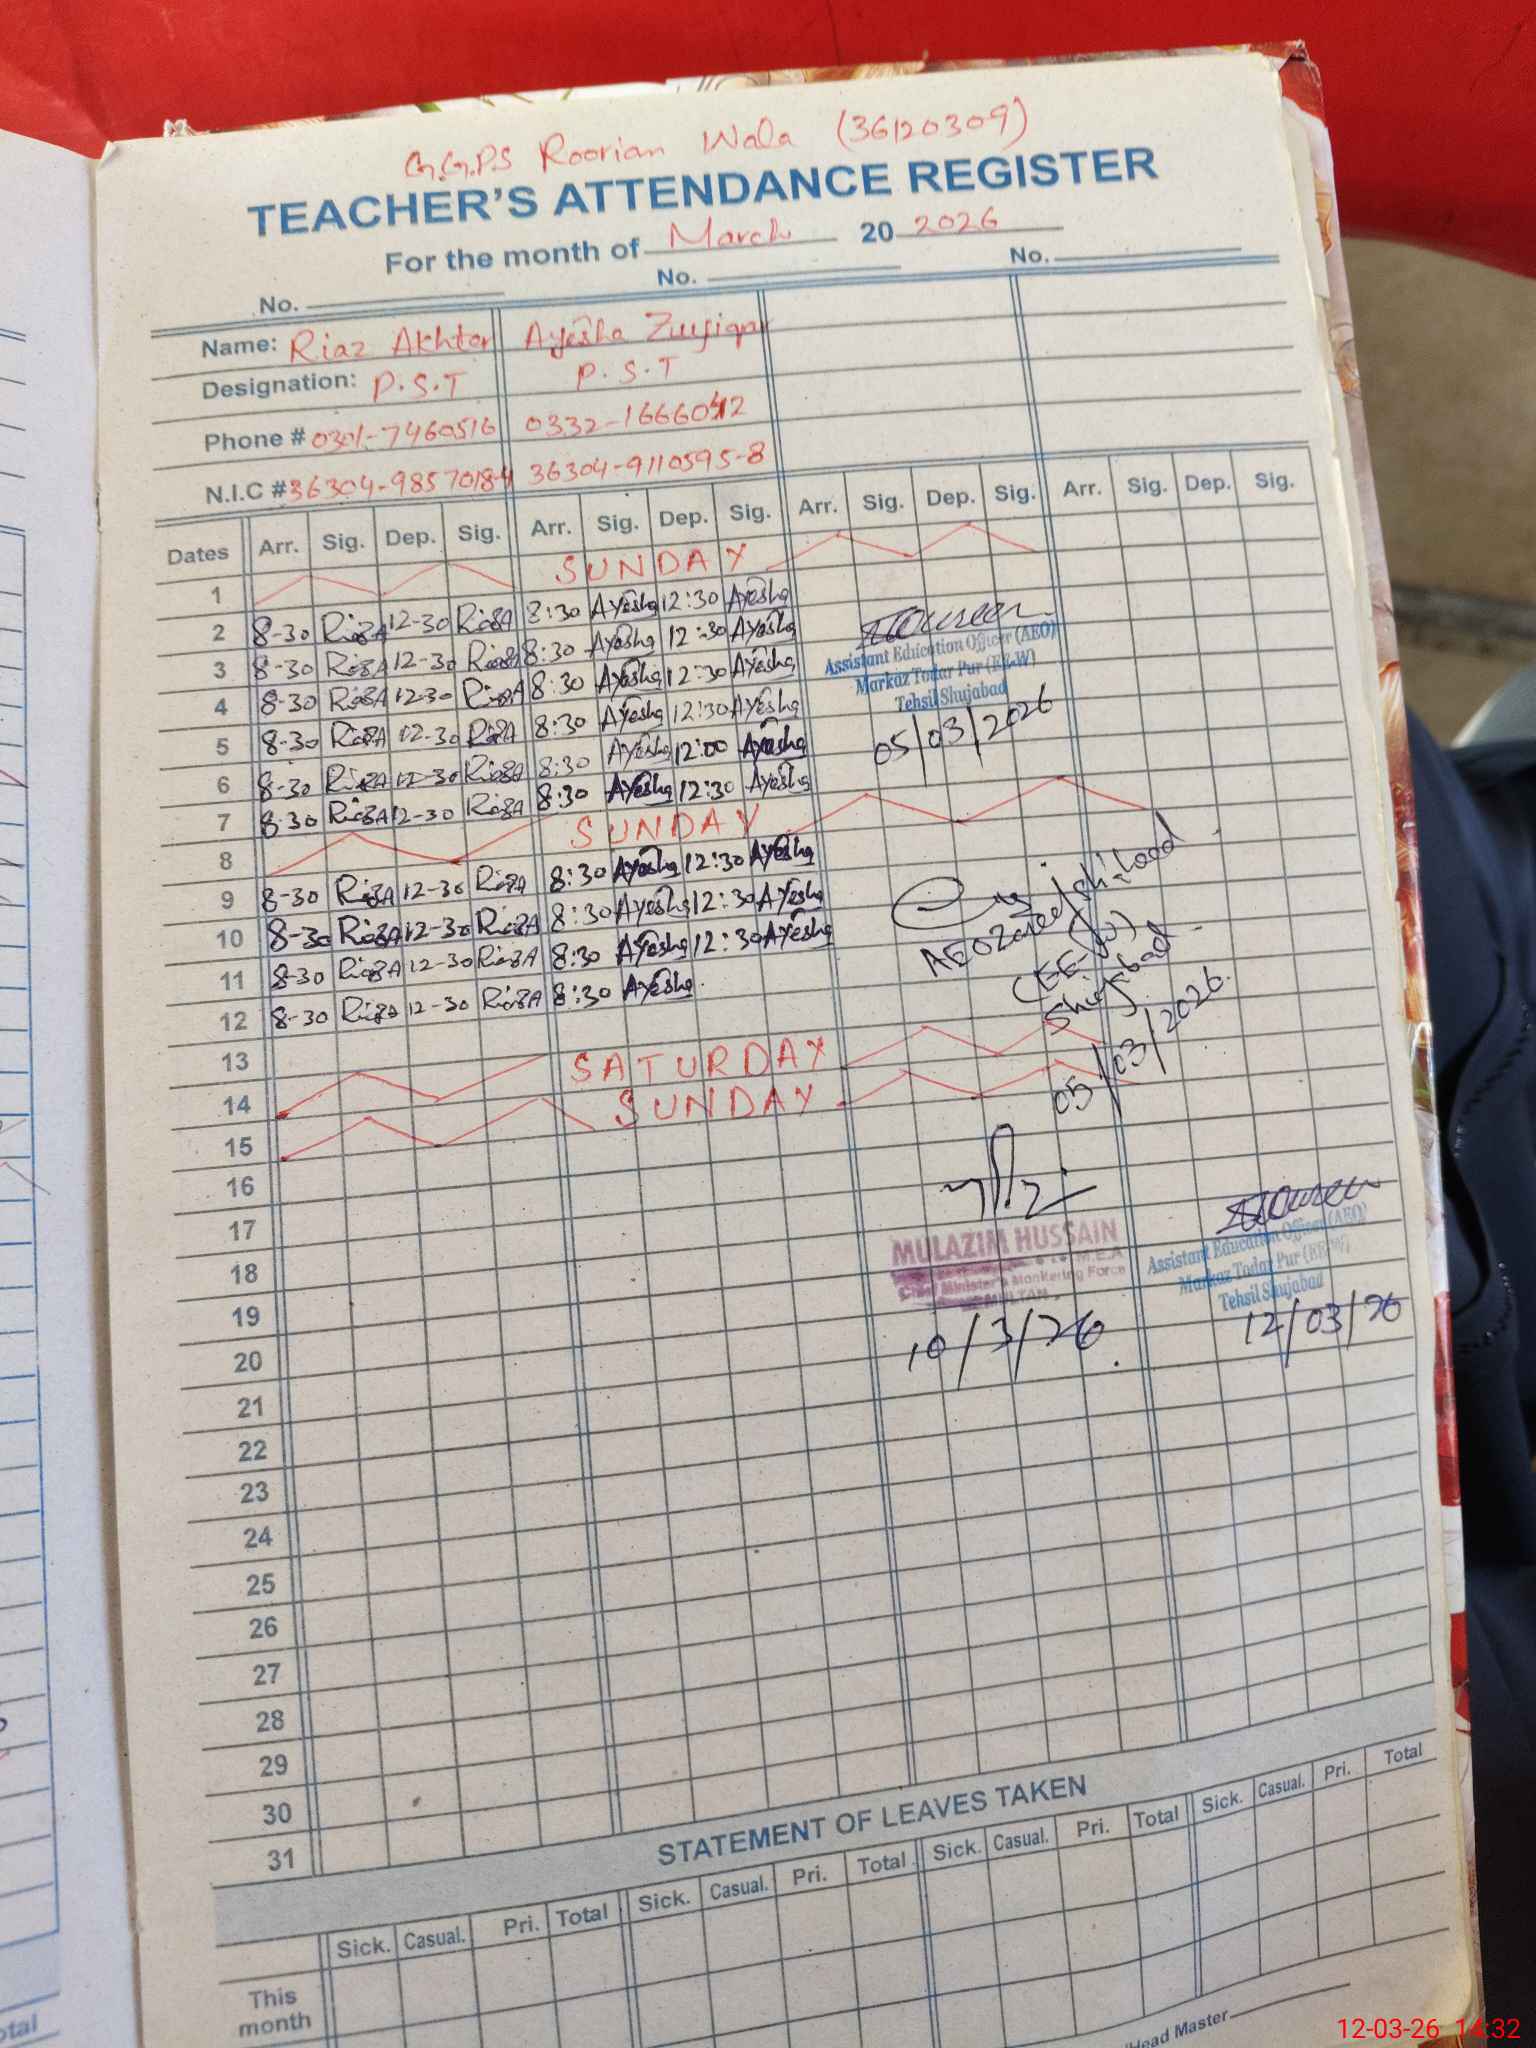 G.G.P.S Roorian Wala (36120309)
TEACHER'S ATTENDANCE REGISTER
For the month of March 20 2026
No. No. No.
Name: Riaz Akhtar Ayesha Zulfiqar
Designation: P.S.T P.S.T
Phone # 0301-7460516 0332-1666042
N.I.C # 36304-9857018-4 36304-9110595-8
Dates Arr. Sig. Dep. Sig. Arr. Sig. Dep. Sig. Arr. Sig. Dep. Sig. Arr. Sig. Dep. Sig.
1 SUNDAY
2 8-30 12-30 8:30 Ayesha 12:30 Ayesha
3 8-30 12-30 8:30 Ayesha 12:30 Ayesha
4 8-30 12-30 8:30 Ayesha 12:30 Ayesha
5 8-30 12-30 8:30 Ayesha 12:30 Ayesha
6 8-30 12-30 8:30 Ayesha 12:00 Ayesha
7 8-30 12-30 8:30 Ayesha 12:30 Ayesha
8 SUNDAY
9 8-30 12-30 8:30 Ayesha 12:30 Ayesha
10 8-30 12-30 8:30 Ayesha 12:30 Ayesha
11 8-30 12-30 8:30 Ayesha 12:30 Ayesha
12 8-30 12-30 8:30 Ayesha
13
14 SATURDAY
15 SUNDAY
16
17
18
19
20
21
22
23
24
25
26
27
28
29
30
31
Assistant Education Officer (AEO)
Markaz Todar Pur (EE-W)
Tehsil Shujabad
05/03/2026
AEO
(EE-W)
Shujabad
05/03/2026.
MULAZIM HUSSAIN
M.E.A
Chief Minister's Monitering Force
MULTAN
10/3/26
Assistant Education Officer (AEO)
Markaz Todar Pur (EE-W)
Tehsil Shujabad
12/03/26
STATEMENT OF LEAVES TAKEN
Sick. Casual. Pri. Total Sick. Casual. Pri. Total Sick. Casual. Pri. Total Sick. Casual. Pri. Total
This
month
/Head Master
otal
12-03-26 14:32